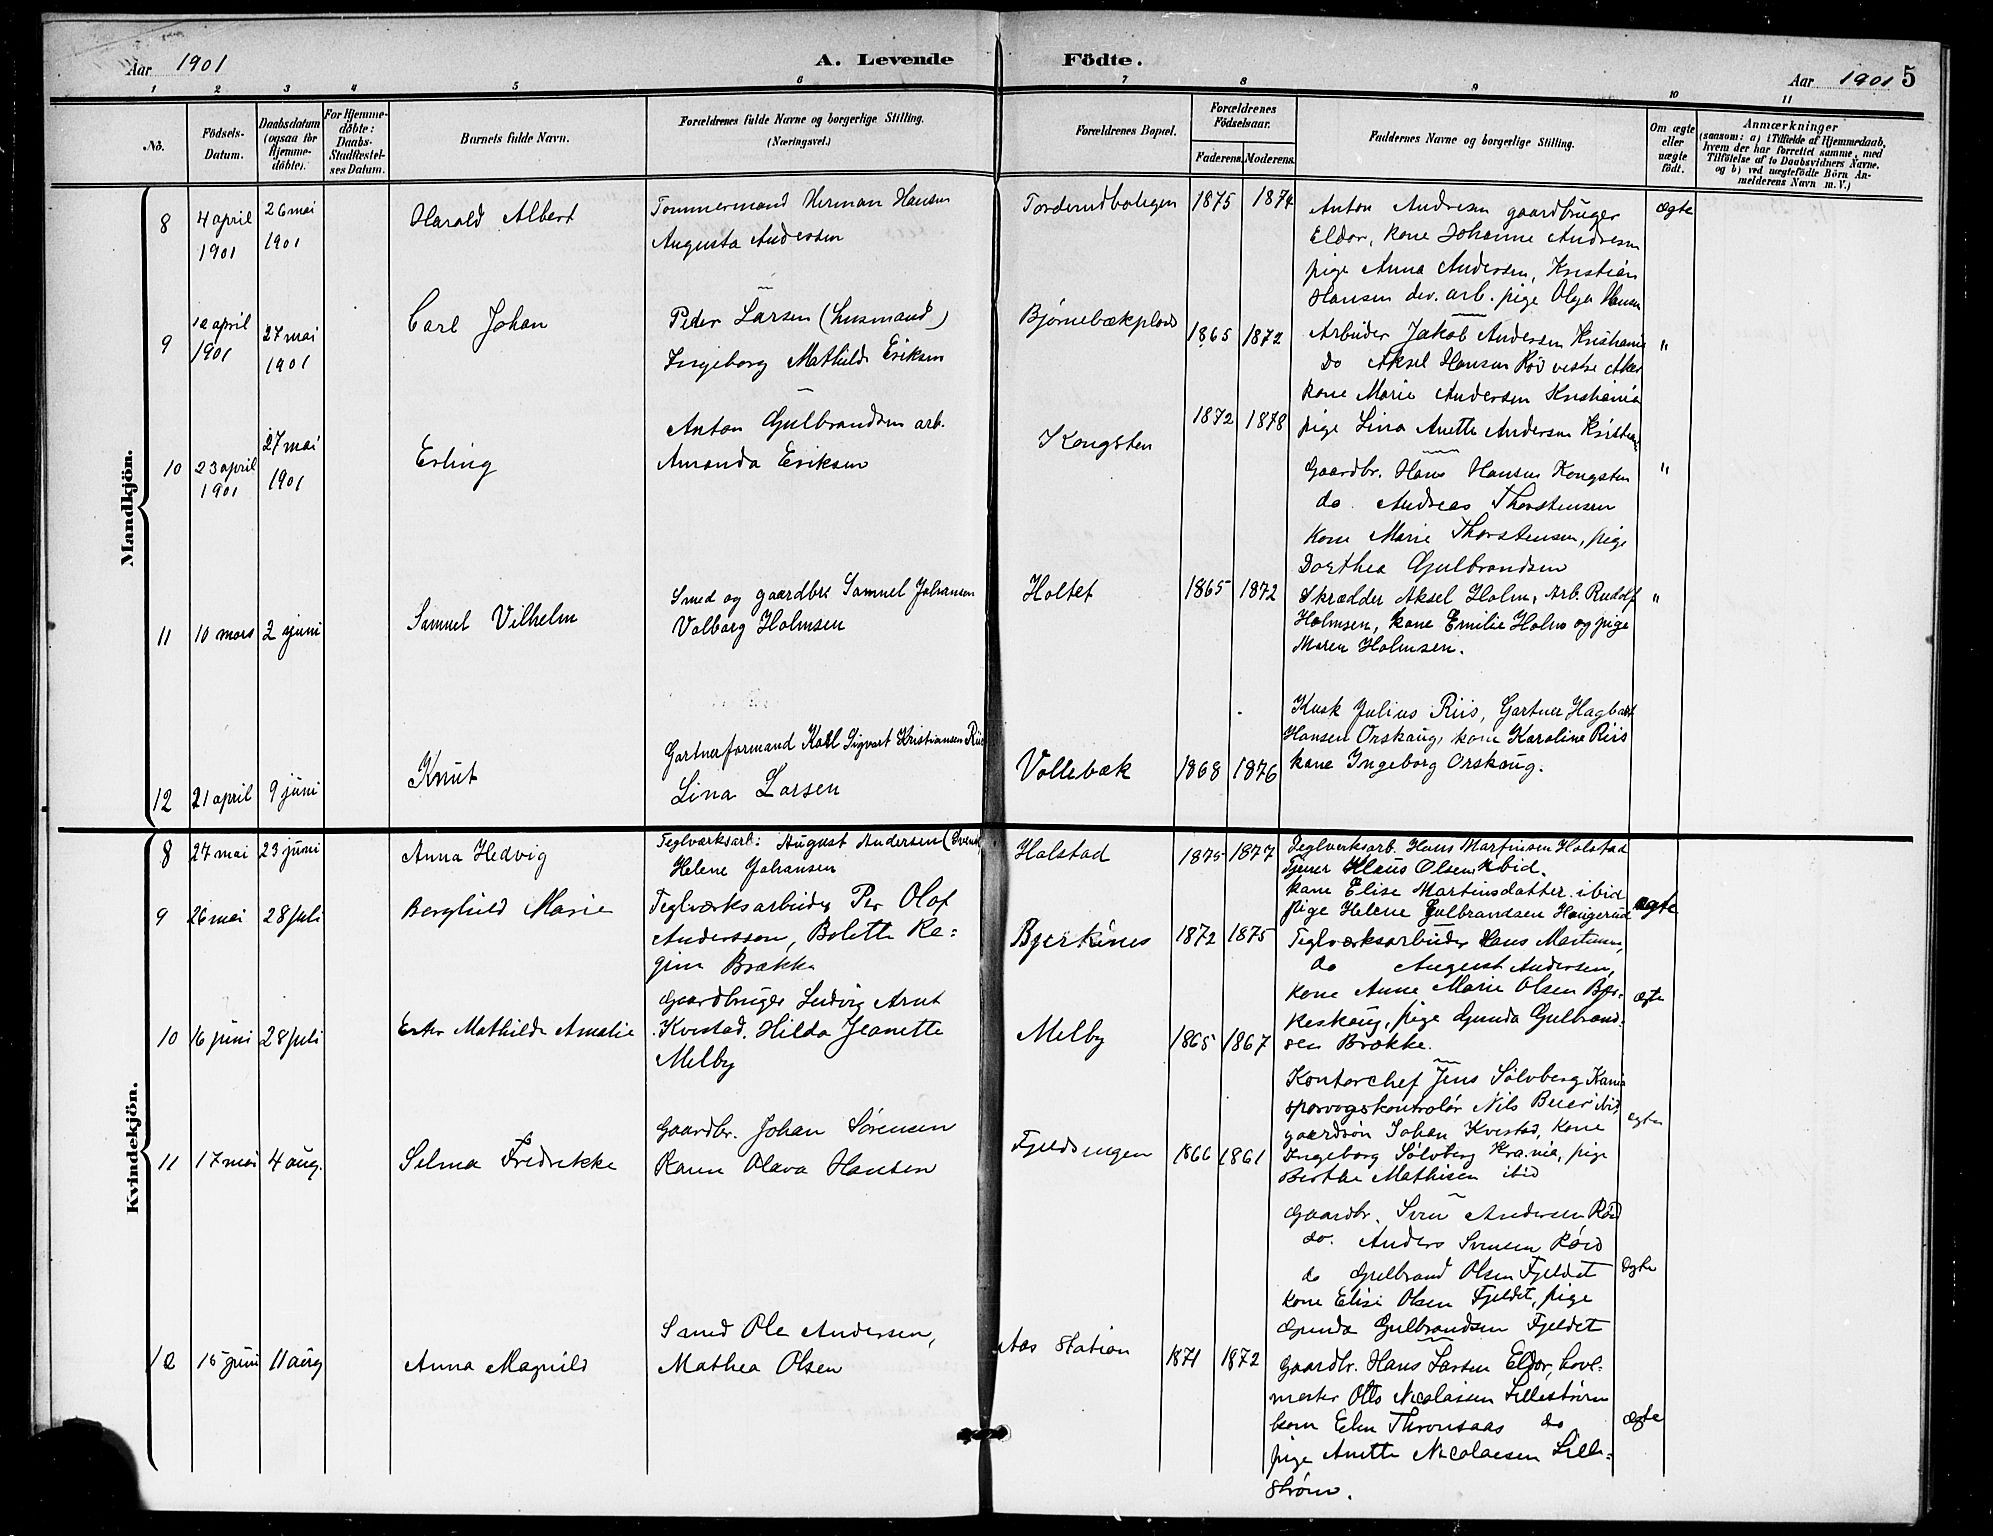 Aar 1901
A. Levende Födte.
Aar 1901 5
1 2 3 4 5 6 7 8 9 10 11
No.
Födsels-
Datum.
Daabsdatum
(ogsaa for
Hjemme-
döbte).
For Hjemme-
döbte:
Daabs-
Stadfæstel-
ses Datum.
Barnets fulde Navn.
Forældrenes fulde Navne og borgerlige Stilling.
(Næringsvei.)
Forældrenes Bopæl.
Forældrenes
Födselsaar.
Faderens. Moderens.
Faddernes Navne og borgerlige Stilling.
Om ægte
eller
uægte
födt.
Anmærkninger
(saasom: a) i Tilfælde af Hjemmedaab,
hvem der har forrettet samme, med
Tilföielse af to Daabsvidners Navne,
og b) ved uægtefödte Börn An-
melderens Navn m. V.)
Mandkjön.
8
4 april
1901
26 mai
1901
Harald Albert
Tømmermand Herman Hansen
Augusta Andersen
1875 1874
Anton Andresen gaardbruger
Eldor, kone Johanne Andresen
pige Anna Andersen, Kristian
Hansen do. arb. pige Olga Hansen
ægte
9
12 april
1901
27 mai
1901
Carl Johan
Peder Larsen (husmand)
Ingeborg Mathilde Eriksen
Bjørnebækplads
1865 1872
Arbeider Jakob Andersen Kristiania
Do Aksel Hansen Røv vestre Aker
kone Marie Andersen Kristiania
pige Lina Anette Andersen
"
10
23 april
1901
27 mai
1901
Erling
Anton Gulbrandsen arb.
Amanda Eriksen
Kongsten
1872 1878
Gaardbr. Hans Hansen Kongsten
do. Andreas Thorstensen
kone Marie Thorstensen, pige
Dorthea Gulbrandsen
"
11
10 mars
2 juni
Samuel Vilhelm
Smed og gaardbr. Samuel Johansen
Valborg Holmsen
Holtet
1865 1872
Skrædder Aksel Holm, Arb. Rudolf
Holmsen, kone Emilie Holm og pige
Maren Holmsen.
"
12
21 april
9 juni
Knut
Gartnerformand Karl Sigvart Kristiansen Riis
Lina Larsen
Vollebæk
1868 1876
Kusk Julius Riis, Gartner Hagbart
Hansen Orskaug, kone Karoline Riis
kone Ingeborg Orskaug.
Kvindekjön.
8
27 mai
23 juni
Anna Hedvig
Teglværksarb: August Andersen (Svensk)
Helene Johansen
Holstad
1875 1877
Teglverksarb. Hans Martinsen Holstad
Tjener Klaus Olsen ibid.
kone Elise Martinsdatter ibid
pige Helene Gulbrandsen Haugerud
ægte
9
26 mai
28 juli
Borghild Marie
Teglværksarbeider Per Olof
Andersson, Bolette Re-
gine Brække
Bjerkenes
1872 1875
Teglværksarbeider Hans Martinsen,
do August Andersen,
kone Anne Marie Olsen Bjer-
keskaug, pige Gunda Gulbrand-
sen Brække.
ægte
10
16 juni
28 juli
Ester Mathilde Amalie
Gaardbruger Ludvig Arnt
Kvestad, Hilda Jeanette
Melby
Melby
1865 1867
Kontorchef Jens Sølvberg Kania
sporvogskontrolør Nils Beier ibid
gaardsøn Johan Kvestad, kone
Ingeborg Sølvberg Krania, pige
Berthe Mathisen ibid
ægte
11
17 mai
4 aug.
Selma Fredrikke
Gaardbr. Johan Sørensen
Karen Olava Hansen
Fjeldsengen
1866 1861
Gaardbr. Sven Andersen Røis
do. Anders Svensen Røis
do Gulbrand Olsen Fjeldet
kone Elise Olsen Fjeldet, pige
Gunda Gulbrandsen Fjeldet
ægte
12
15 juni
11 aug
Anna Magnild
Smed Ole Andersen,
Mathea Olsen
Aas Station
1871 1872
Gaardbr. Hans Larsen Eldor, hovl-
mester Otto Nicolaisen Lillestrøm
kone Elen Thronsaas do
pige Anette Nicolaisen Lille-
strøm.
ægte